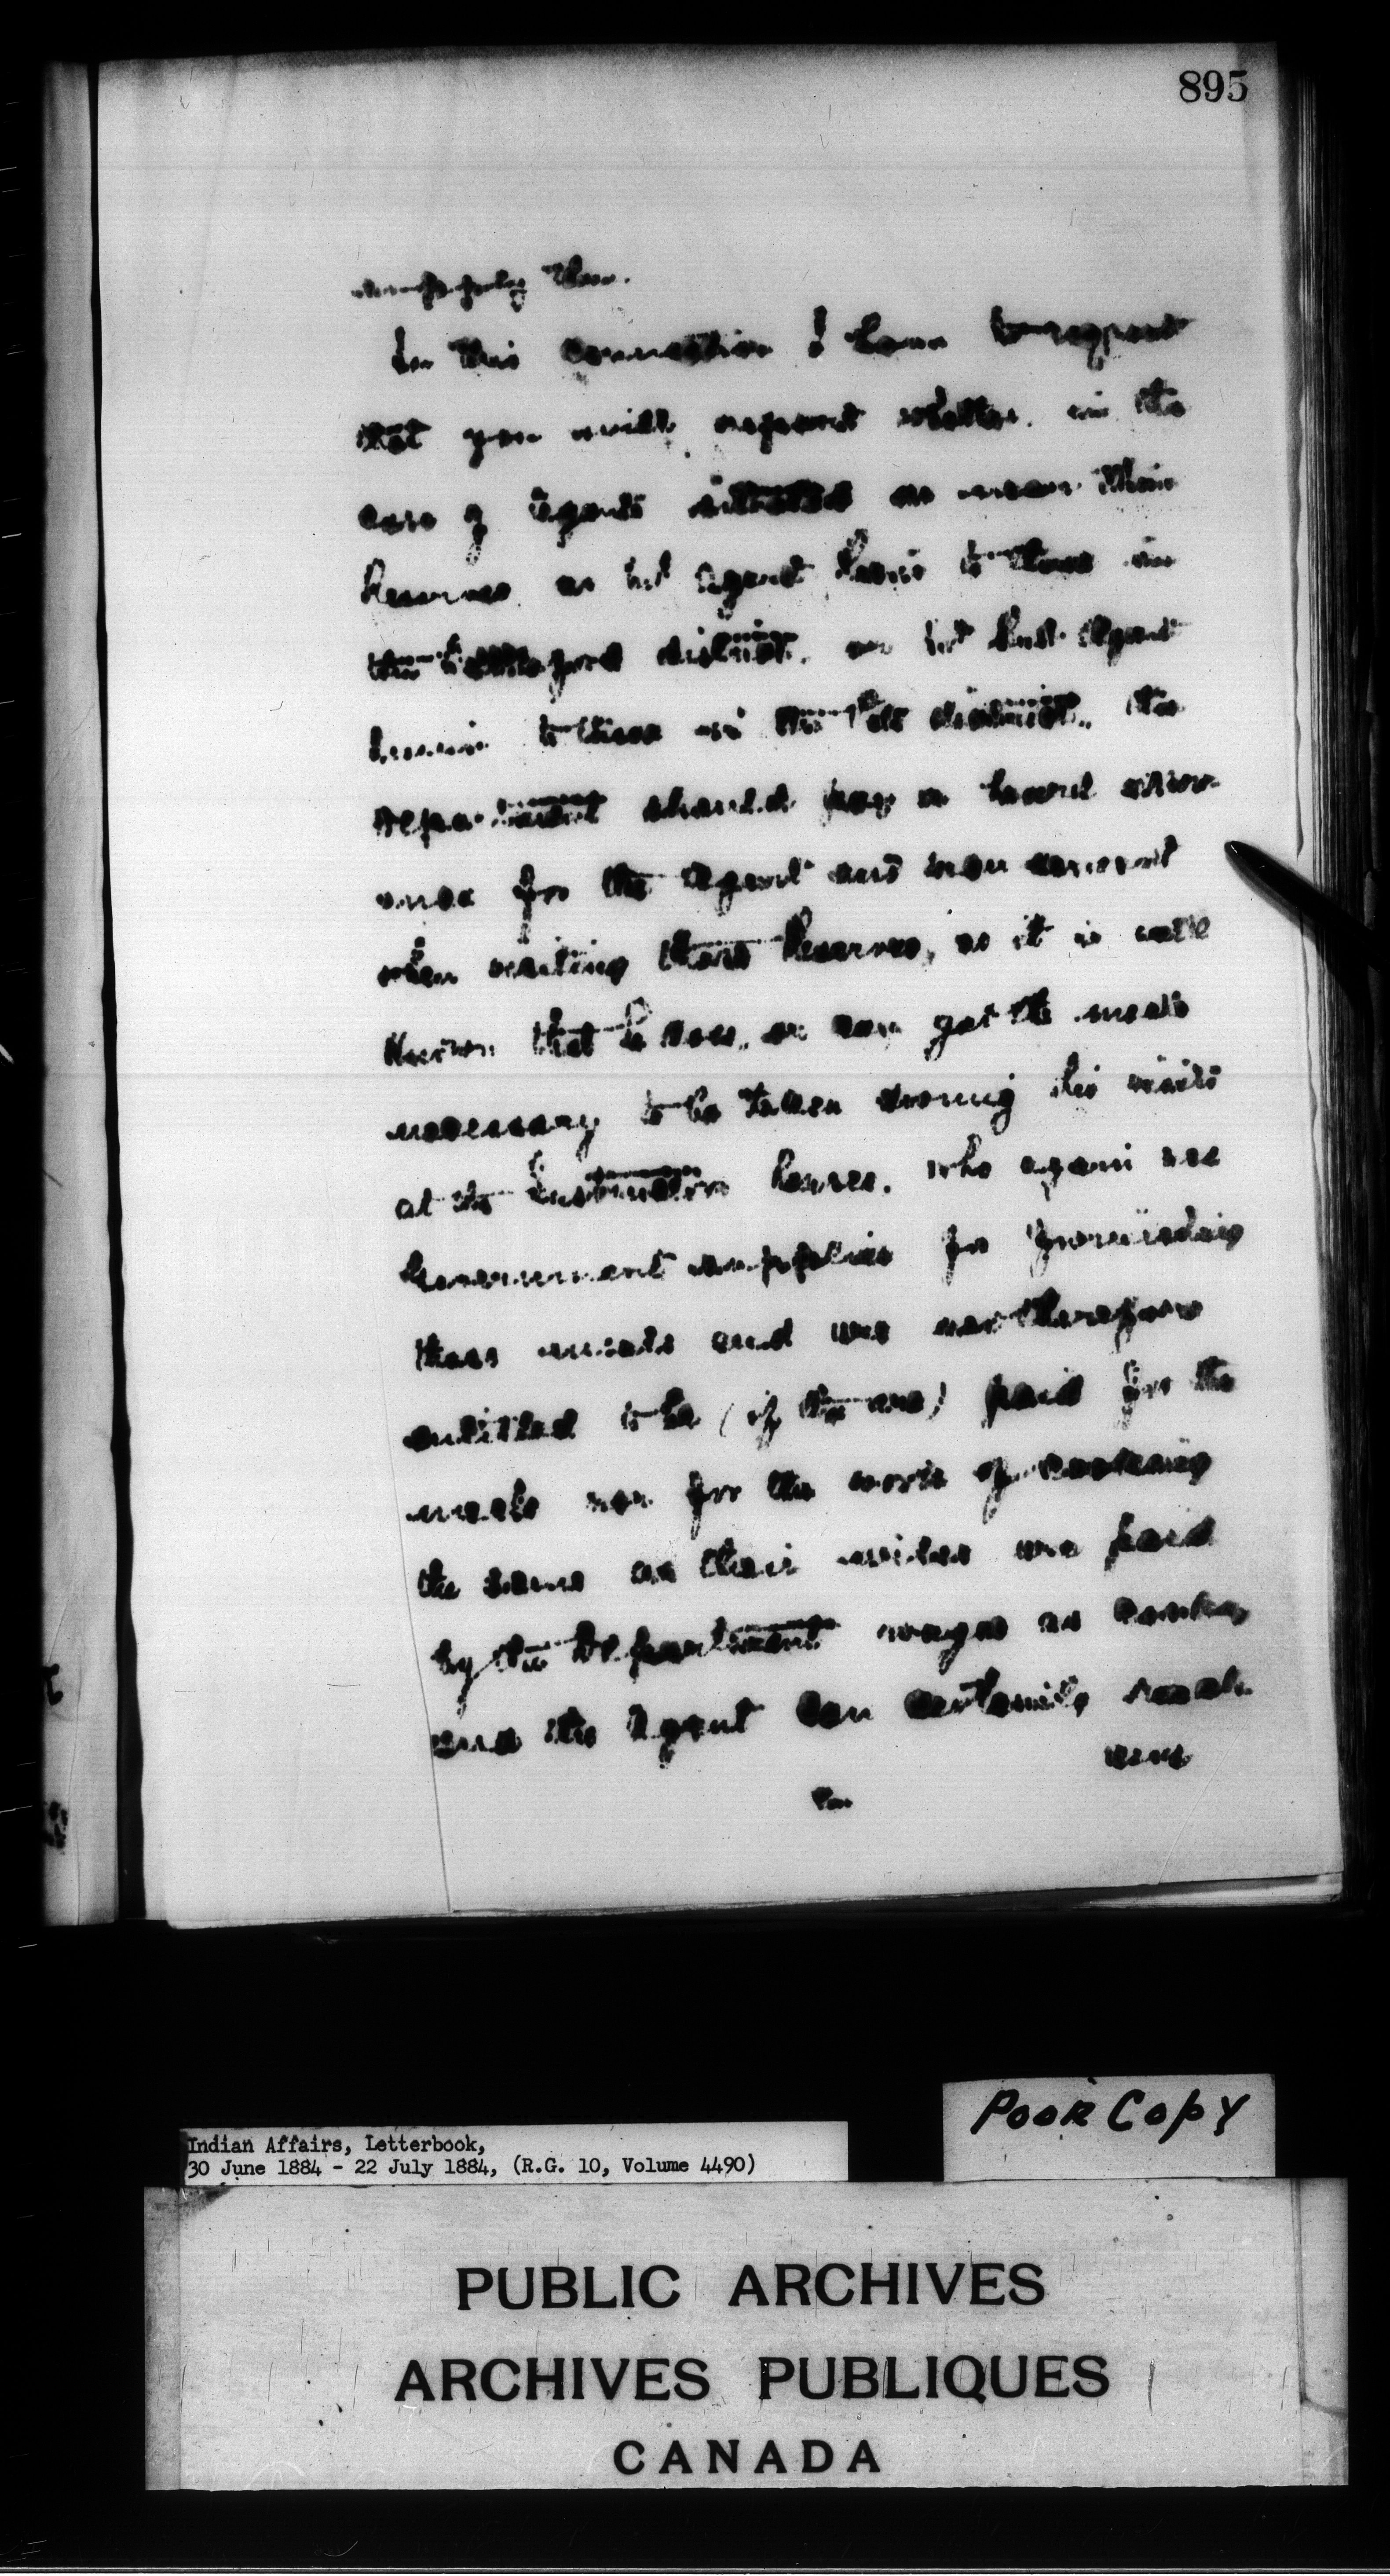 895
supply them.
In this connection I have to request
that you will report whether in the
case of Agents situated as near their
Reserves as Agent is to those in
the district, or Agent
is to those in the district, the
Department should pay a board allow-
ance for the Agent and man
when visiting those Reserves, as it is well
known that he does, or can get the meals
necessary to be taken during his visits
at the Instructors houses, who again use
Government supplies for furnishing
these meals and are not therefore
entitled to be (if they are) paid for the
meals nor for the work of cooking
the same as their wives are paid
by the Department wages as cooks,
and the Agent can certainly reach
Poor Copy
Indian Affairs, Letterbook,
30 June 1884 - 22 July 1884, (R.G. 10, Volume 4490)
PUBLIC ARCHIVES
ARCHIVES PUBLIQUES
CANADA